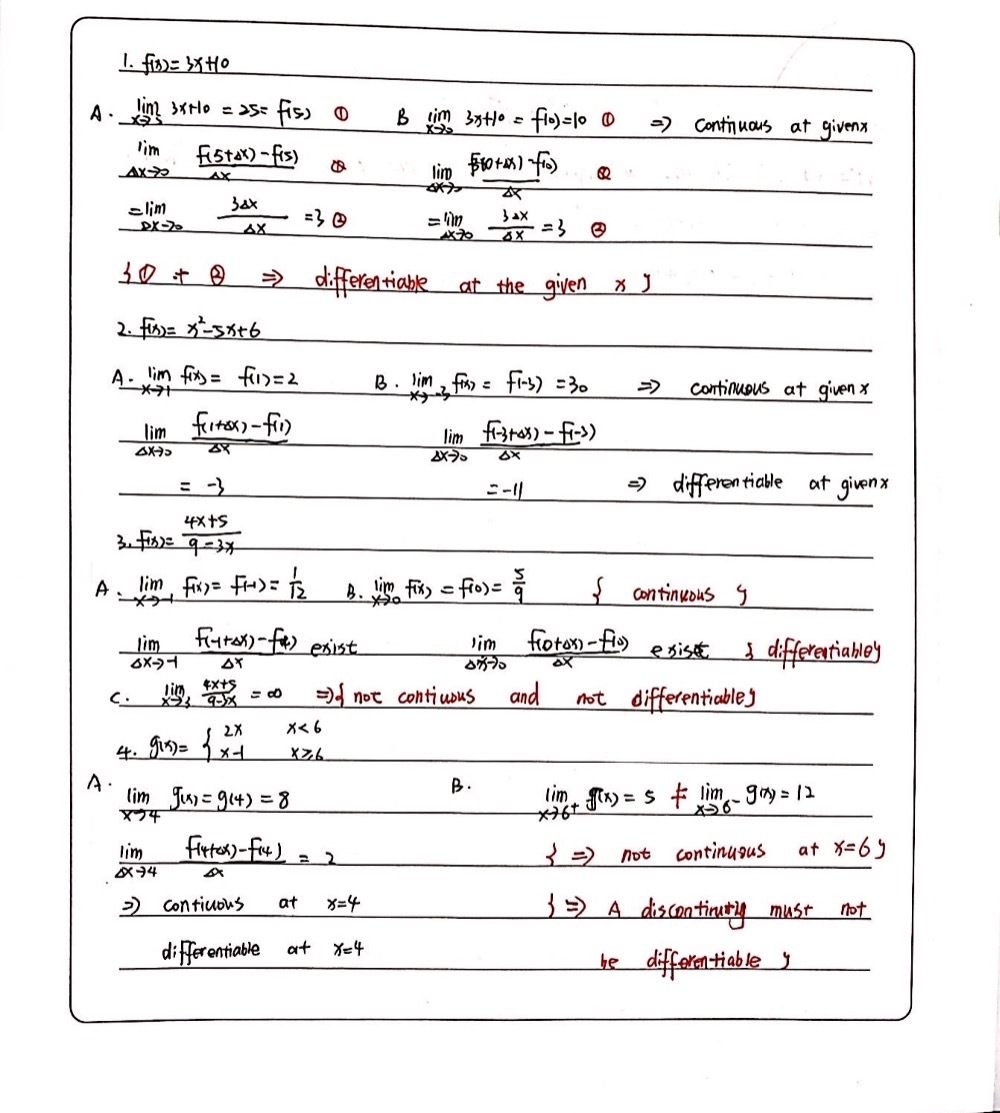 1. f(x)= 3x+10
A. lim x→5 3x+10 = 25= f(5) ① B lim x→0 3x+10 = f(0)=10 ① ⇒ continuous at given x
lim Δx→0 f(5+Δx)-f(5) / Δx ② lim Δx→0 f(0+Δx)-f(0) / Δx ②
=lim Δx→0 3Δx / Δx =3 ② =lim Δx→0 3Δx / Δx =3 ②
{① + ② ⇒ differentiable at the given x }
2. f(x)= x²-5x+6
A. lim x→1 f(x)= f(1)=2 B. lim x→-3 f(x) = f(-3) =30 ⇒ continuous at given x
lim Δx→0 f(1+Δx)-f(1) / Δx lim Δx→0 f(-3+Δx)-f(-3) / Δx
= -3 =-11 ⇒ differentiable at given x
3. f(x)= 4x+5 / 9-3x
A. lim x→-1 f(x)= f(-1)= 1/12 B. lim x→0 f(x) = f(0)= 5/9 { continuous }
lim Δx→-1 f(-1+Δx)-f(-1) / Δx exist lim Δx→0 f(0+Δx)-f(0) / Δx exist { differentiable}
C. lim x→3 4x+5 / 9-3x = ∞ ⇒{ not contiuous and not differentiable}
4. g(x)= { 2x x<6
x-1 x≥6
A. B.
lim x→4 g(x)=g(4)=8 lim x→6+ g(x)=5 ≠ lim x→6- g(x)=12
lim Δx→4 f(4+Δx)-f(4) / Δx = 2 { ⇒ not continuous at x=6}
⇒ contiuous at x=4 { ⇒ A discontinuity must not
differentiable at x=4 be differentiable }